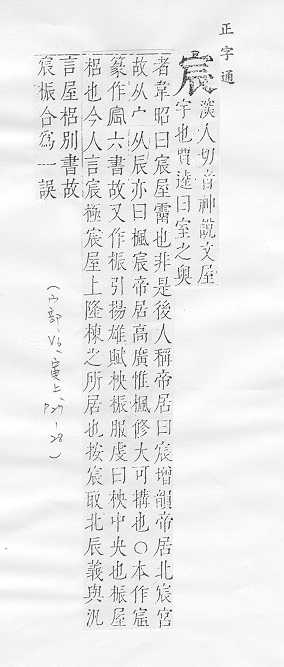 正字通
宸 湌人切音神說文屋
宇也賈逵曰室之奥
者韋昭曰宸屋霤也非是後人稱帝居曰宸增韻帝居北宸宮
故从宀从辰亦曰楓宸帝居高廣惟楓修大可構也○本作
篆作 六書故又作桭引揚雄賦柍桭服虔曰柍中央也桭屋
梠也今人言宸極宸屋上隆棟之所居也按宸取北辰義與汎
言屋梠別書故
宸桭合為一誤
(宀部 V6, 寅上, P27-28)